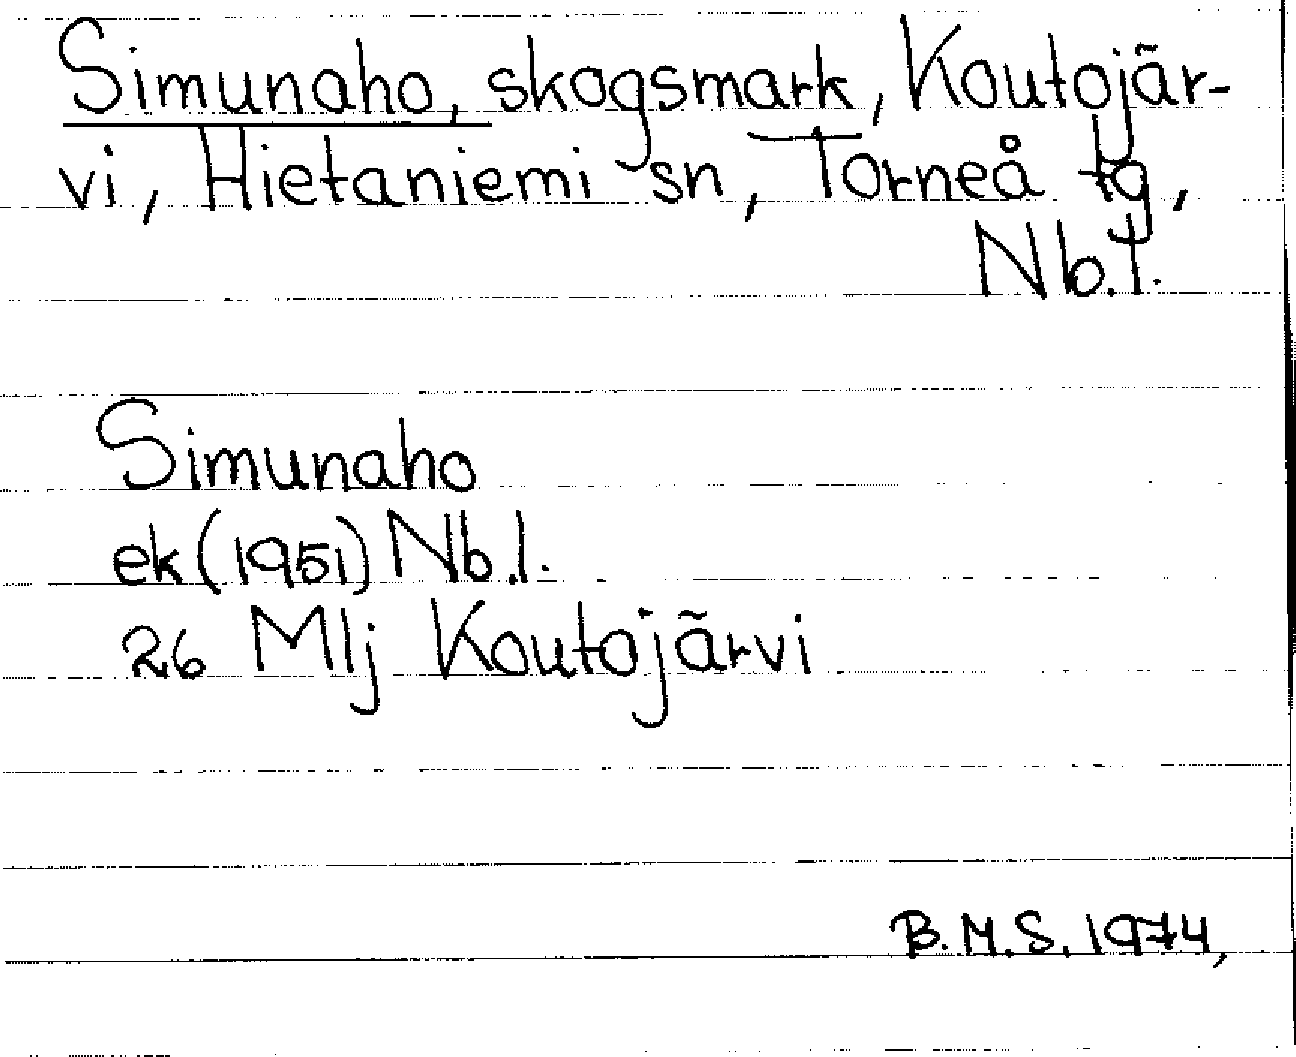 Simunaho, skogsmark, Koutojär-
vi, Hietaniemi sn, Torneå tg,
Nb.l.
Simunaho
ek (1951) Nb.l.
26 Mlj Koutojärvi
B.M.S. 1974,